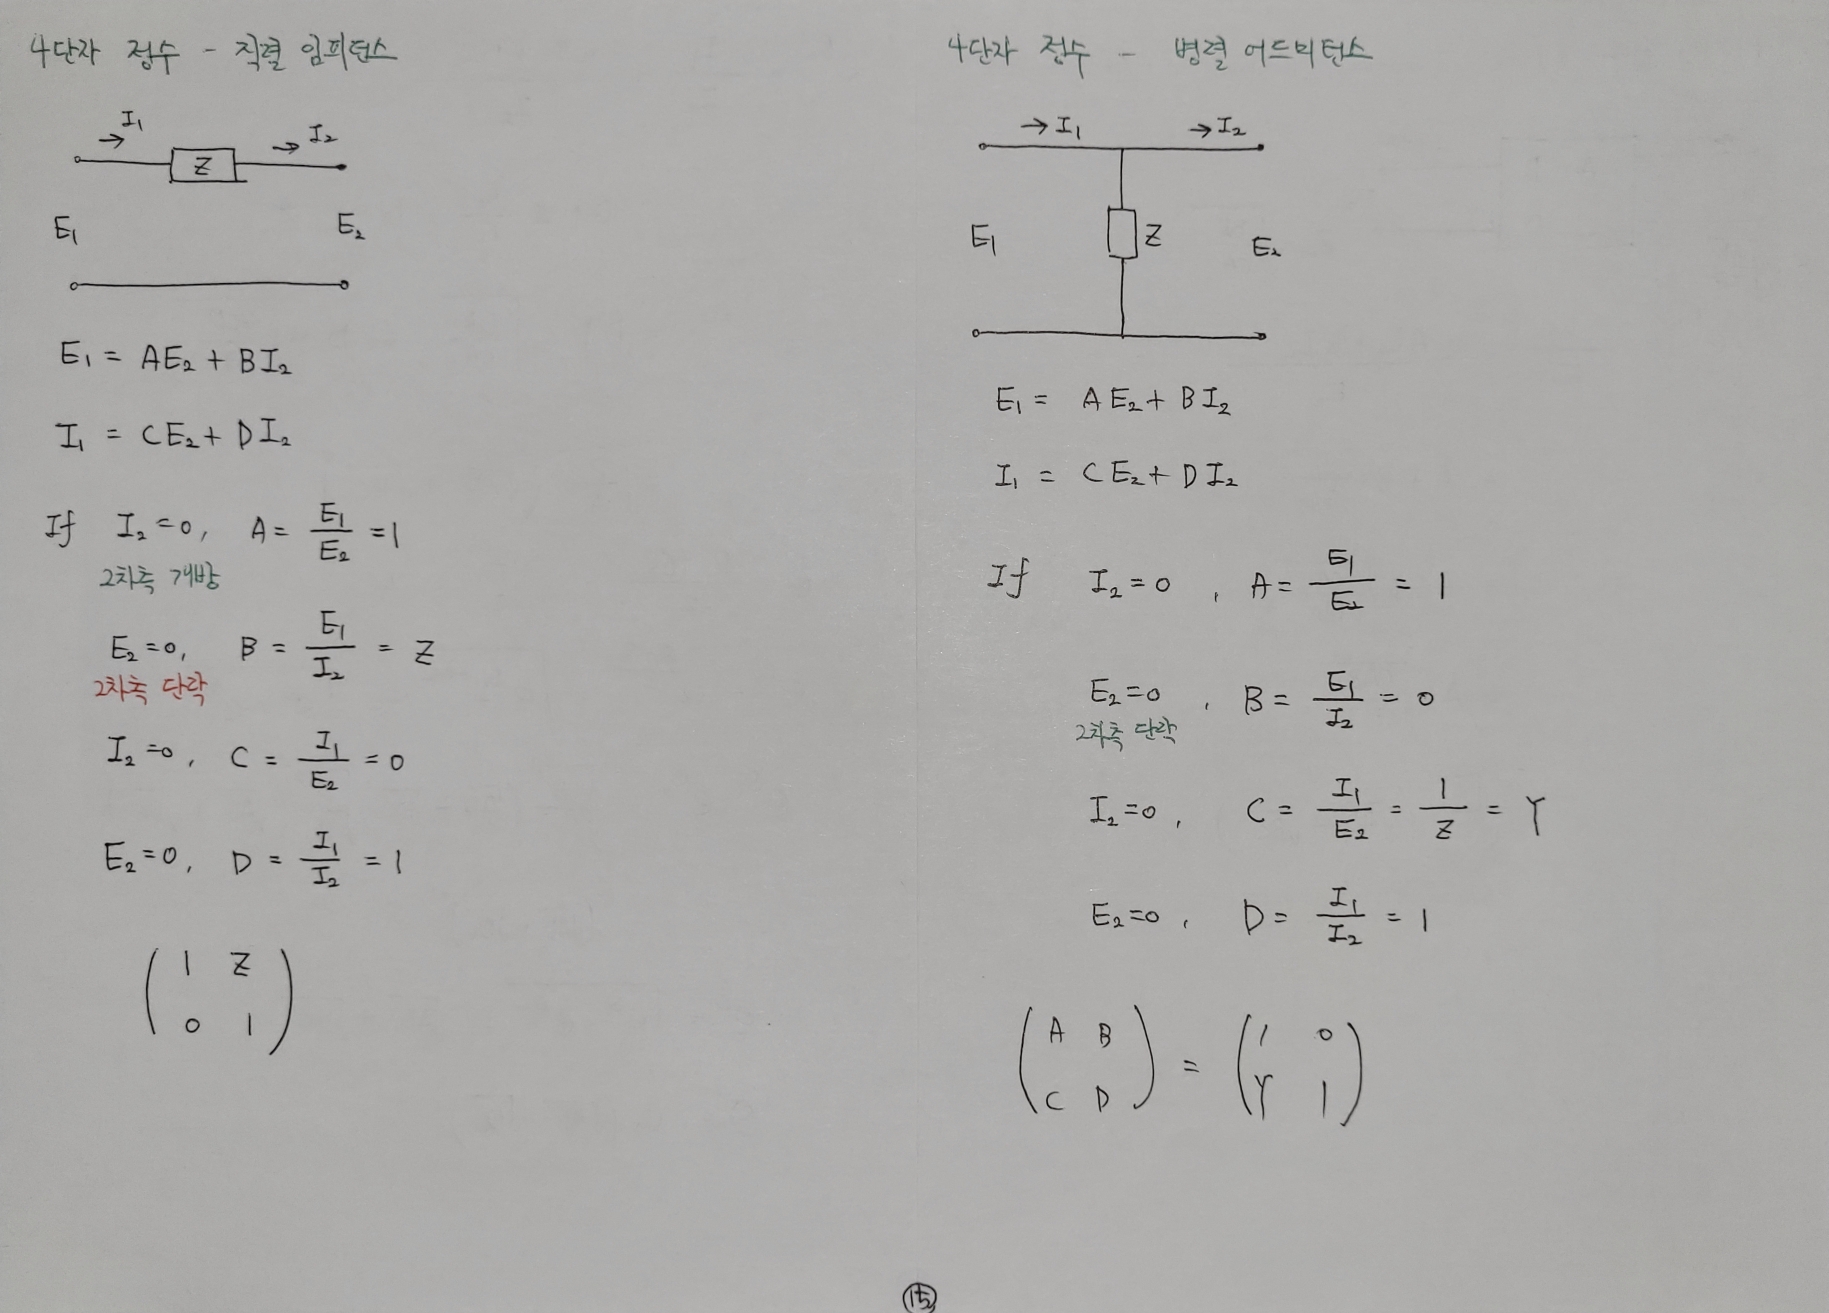 4단자 정수 - 직렬 임피던스
I₁
I₂
Z
E₁
E₂
E₁ = AE₂ + BI₂
I₁ = CE₂ + DI₂
If I₂=0, A = E₁/E₂ = 1
2차측 개방
E₂=0, B = E₁/I₂ = Z
2차측 단락
I₂=0, C = I₁/E₂ = 0
E₂=0, D = I₁/I₂ = 1
( 1 Z
0 1 )
4단자 정수 - 병렬 어드미턴스
→ I₁ → I₂
E₁ Z E₂
E₁ = AE₂ + BI₂
I₁ = CE₂ + DI₂
If I₂=0, A = E₁/E₂ = 1
E₂=0, B = E₁/I₂ = 0
2차측 단락
I₂=0, C = I₁/E₂ = 1/Z = Y
E₂=0, D = I₁/I₂ = 1
( A B
C D ) = ( 1 0
Y 1 )